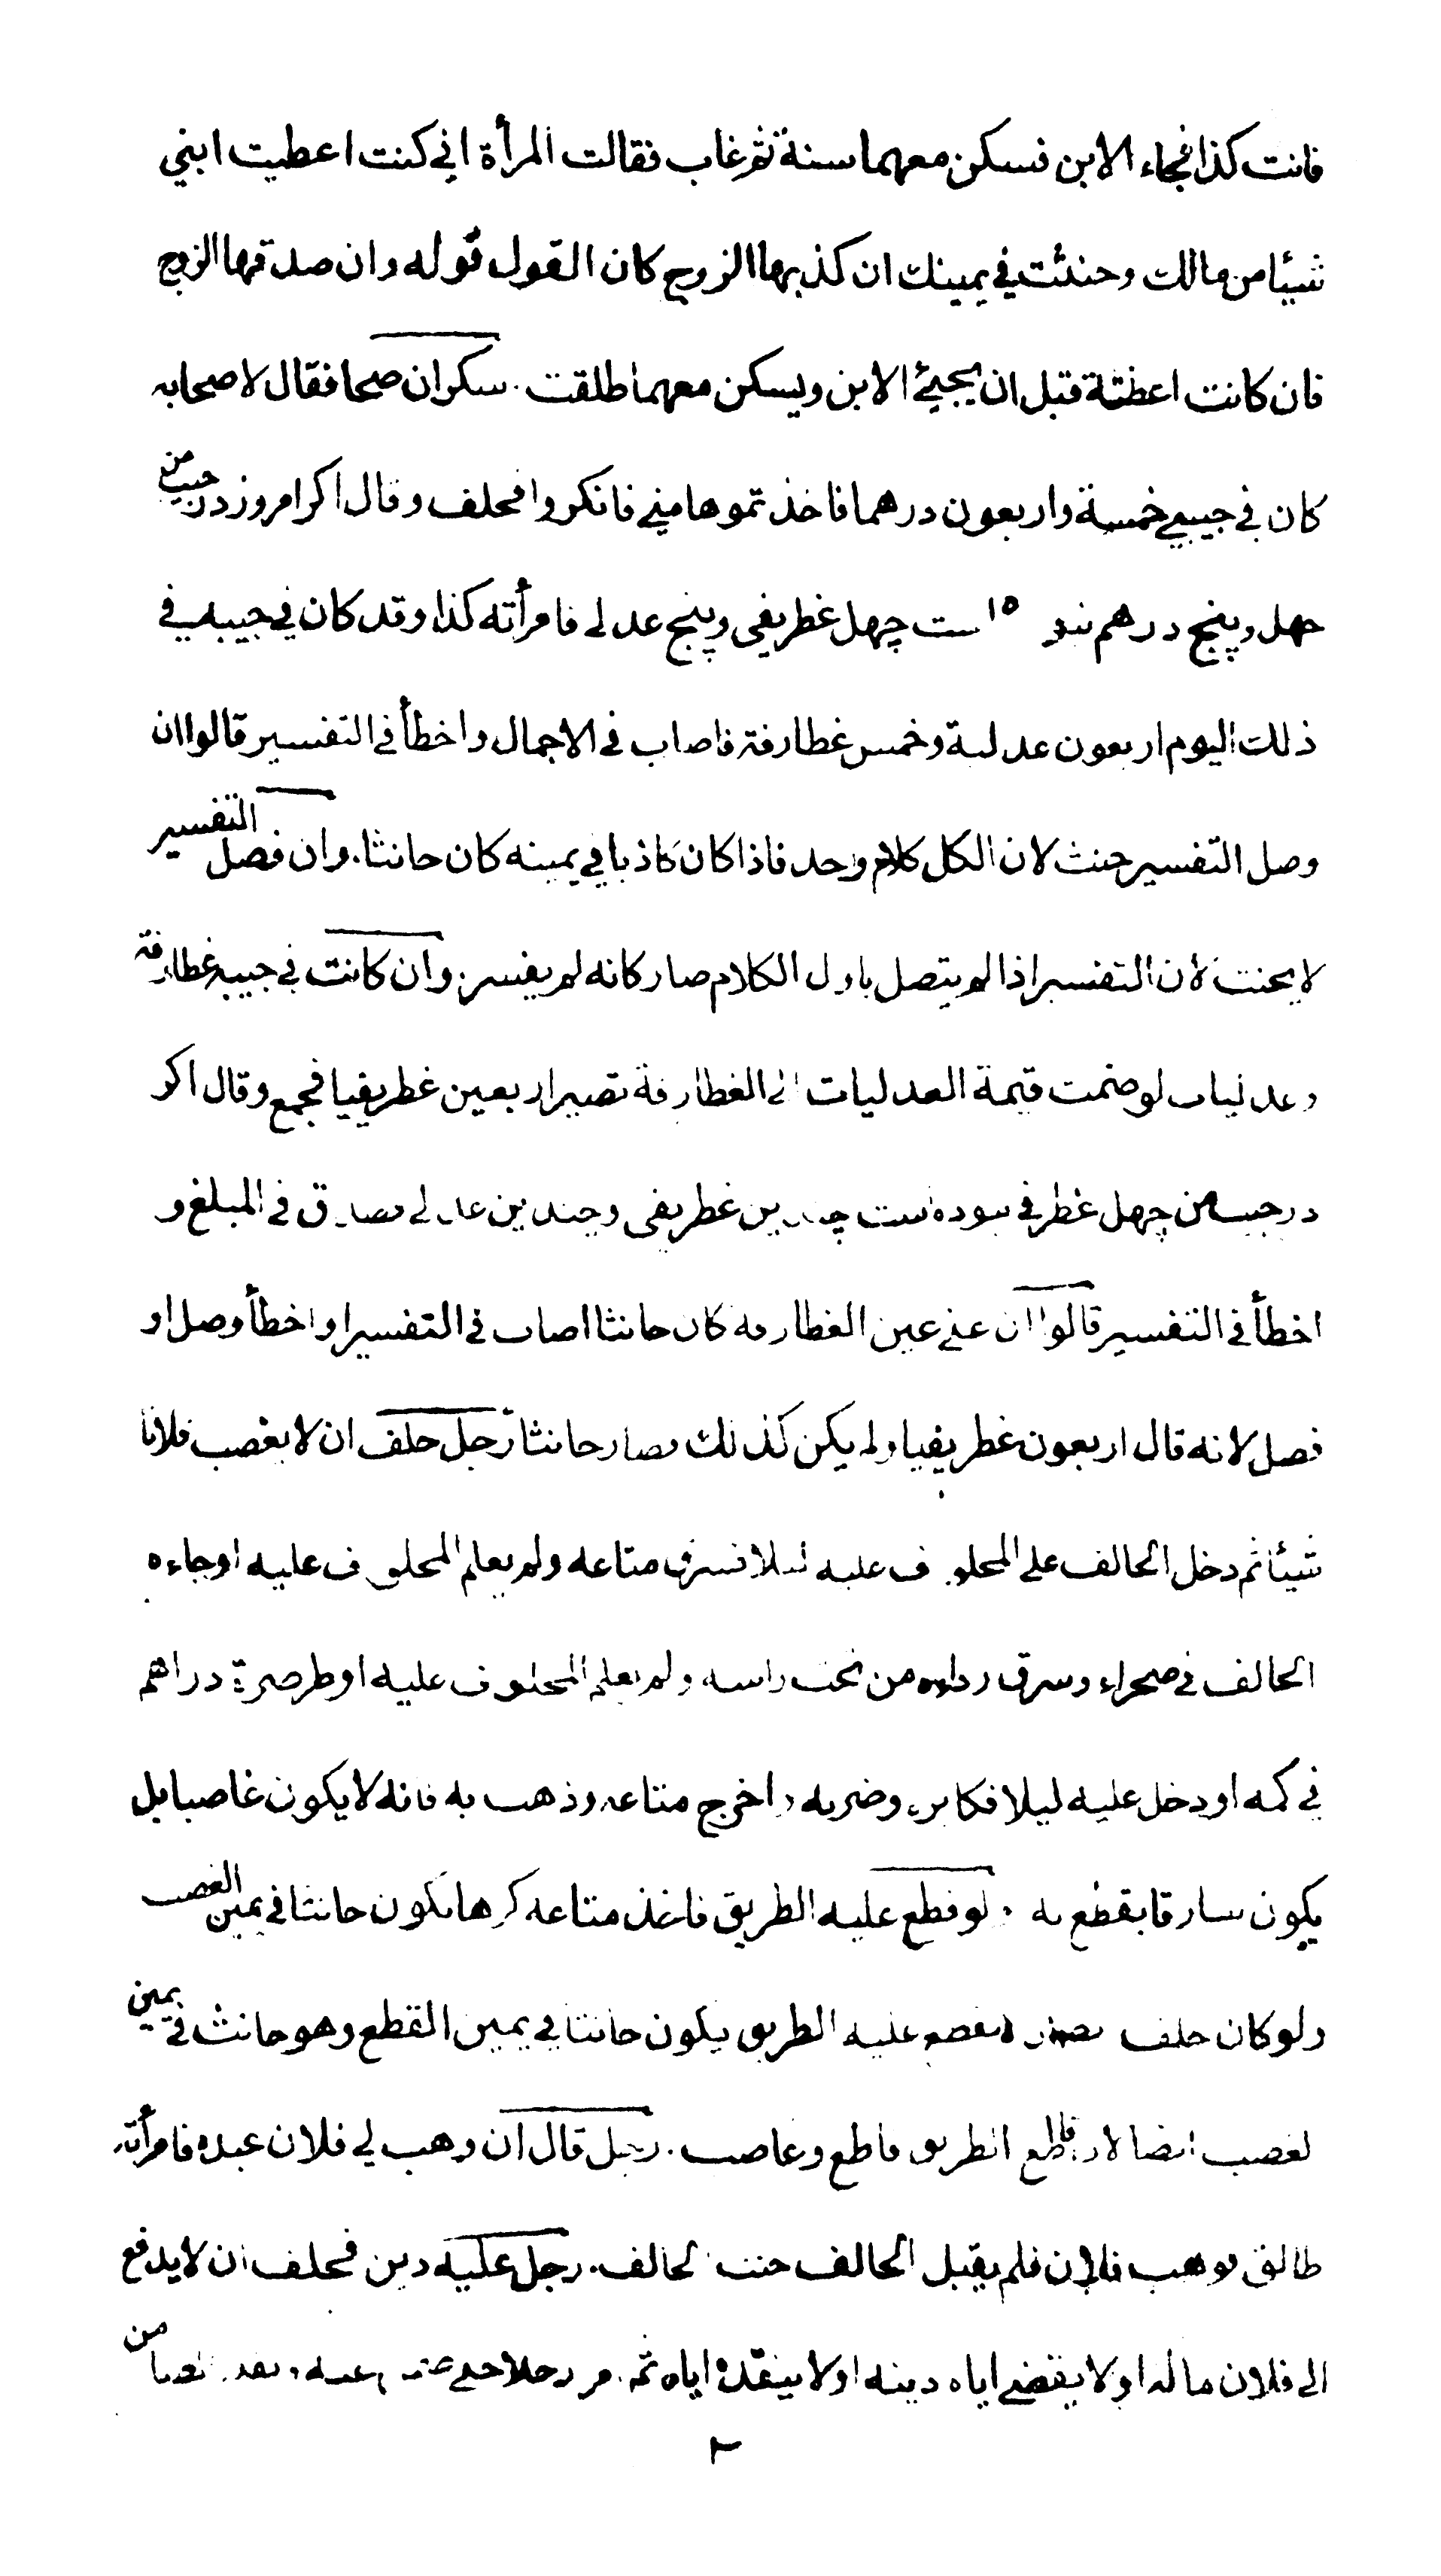 فانت كذا فجاء الابن فسكن معهما سنة ثم غاب فقالت المرأة اني كنت اعطيت ابني
شيئا من مالك وحنثت في يمينك ان كذبها الزوج كان القول قوله وان صدقها الزوج
فان كانت اعطته قبل ان يجيئ الابن ويسكن معهما طلقت . سكران صحا فقال لاصحابه
كان في جيبي خمسة واربعون درهما فاخذتموها مني فانكروا فحلف وقال اكر امروز در جيب من
چهل وپنج درهم ست چهل غطريفي وپنج عدلي فامرأته كذا وقد كان في جيبه في
ذلك اليوم اربعون عدلية وخمس غطارفة فاصاب في الاجمال واخطأ في التفسير قالوا ان
وصل التفسير حنث لان الكل كلام واحد فاذا كان كاذبا في يمينه كان حانثا . وان فصل التفسير
لا يحنث لان التفسير اذا لم يتصل باول الكلام صار كانه لم يفسر . وان كانت في جيبه غطارفة
وعدليات لو ضمت قيمة العدليات الى الغطارفة تصير اربعين غطريفيا فجمع وقال اكر
در جيب من چهل غطرفي بوده است چندين غطريفي وچندين عدلي فصدق في المبلغ و
اخطأ في التفسير قالوا ان عنى عين الغطارفة كان حانثا اصاب في التفسير او اخطأ وصل او
فصل لانه قال اربعون غطريفيا ولم يكن كذلك فصار حانثا رجل حلف ان لا يغصب فلانا
شيئا ثم دخل الحالف على المحلوف عليه ليلا فسرق متاعه ولم يعلم المحلوف عليه او جاءه
الحالف في صحراء وسرق رداءه من تحت راسه ولم يعلم المحلوف عليه او طر صرة دراهم
في كمه او دخل عليه ليلا فكابره وضربه واخرج متاعه وذهب به فانه لا يكون غاصبا بل
يكون سارقا يقطع به . لو قطع عليه الطريق فاخذ متاعه كرها يكون حانثا في يمين الغصب
ولو كان حلف عليه الطريق يكون حانثا في يمين القطع وهو حانث في يمين
لغصب ايضا لان قاطع الطريق قاطع وغاصب . رجل قال ان وهب لي فلان عبده فامرأته
طالق فوهب فلان فلم يقبل الحالف حنث الحالف . رجل عليه دين فحلف ان لا يدفع
الى فلان ماله او لا يقضي اياه دينه او لا ينقده اياه ثم امر رجلا من
٢